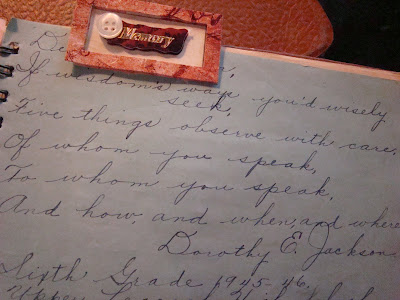 Memory
De
If wisdom's way you'd wisely
seek,
Five things observe with care,
Of whom you speak,
To whom you speak,
And how, and when, and where
Dorothy E. Jackson
Sixth Grade 1945-46.
Upper